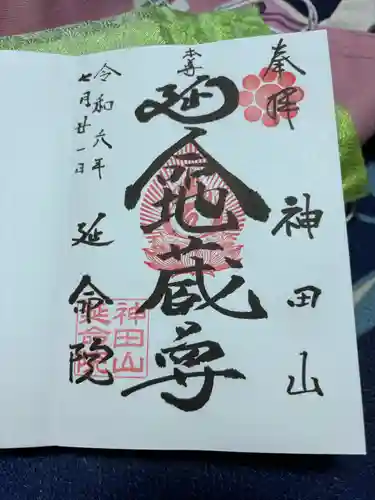 奉拝
神田山
本尊
延命地蔵尊
令和六年
七月廿一日
延命院
神田山
延命院